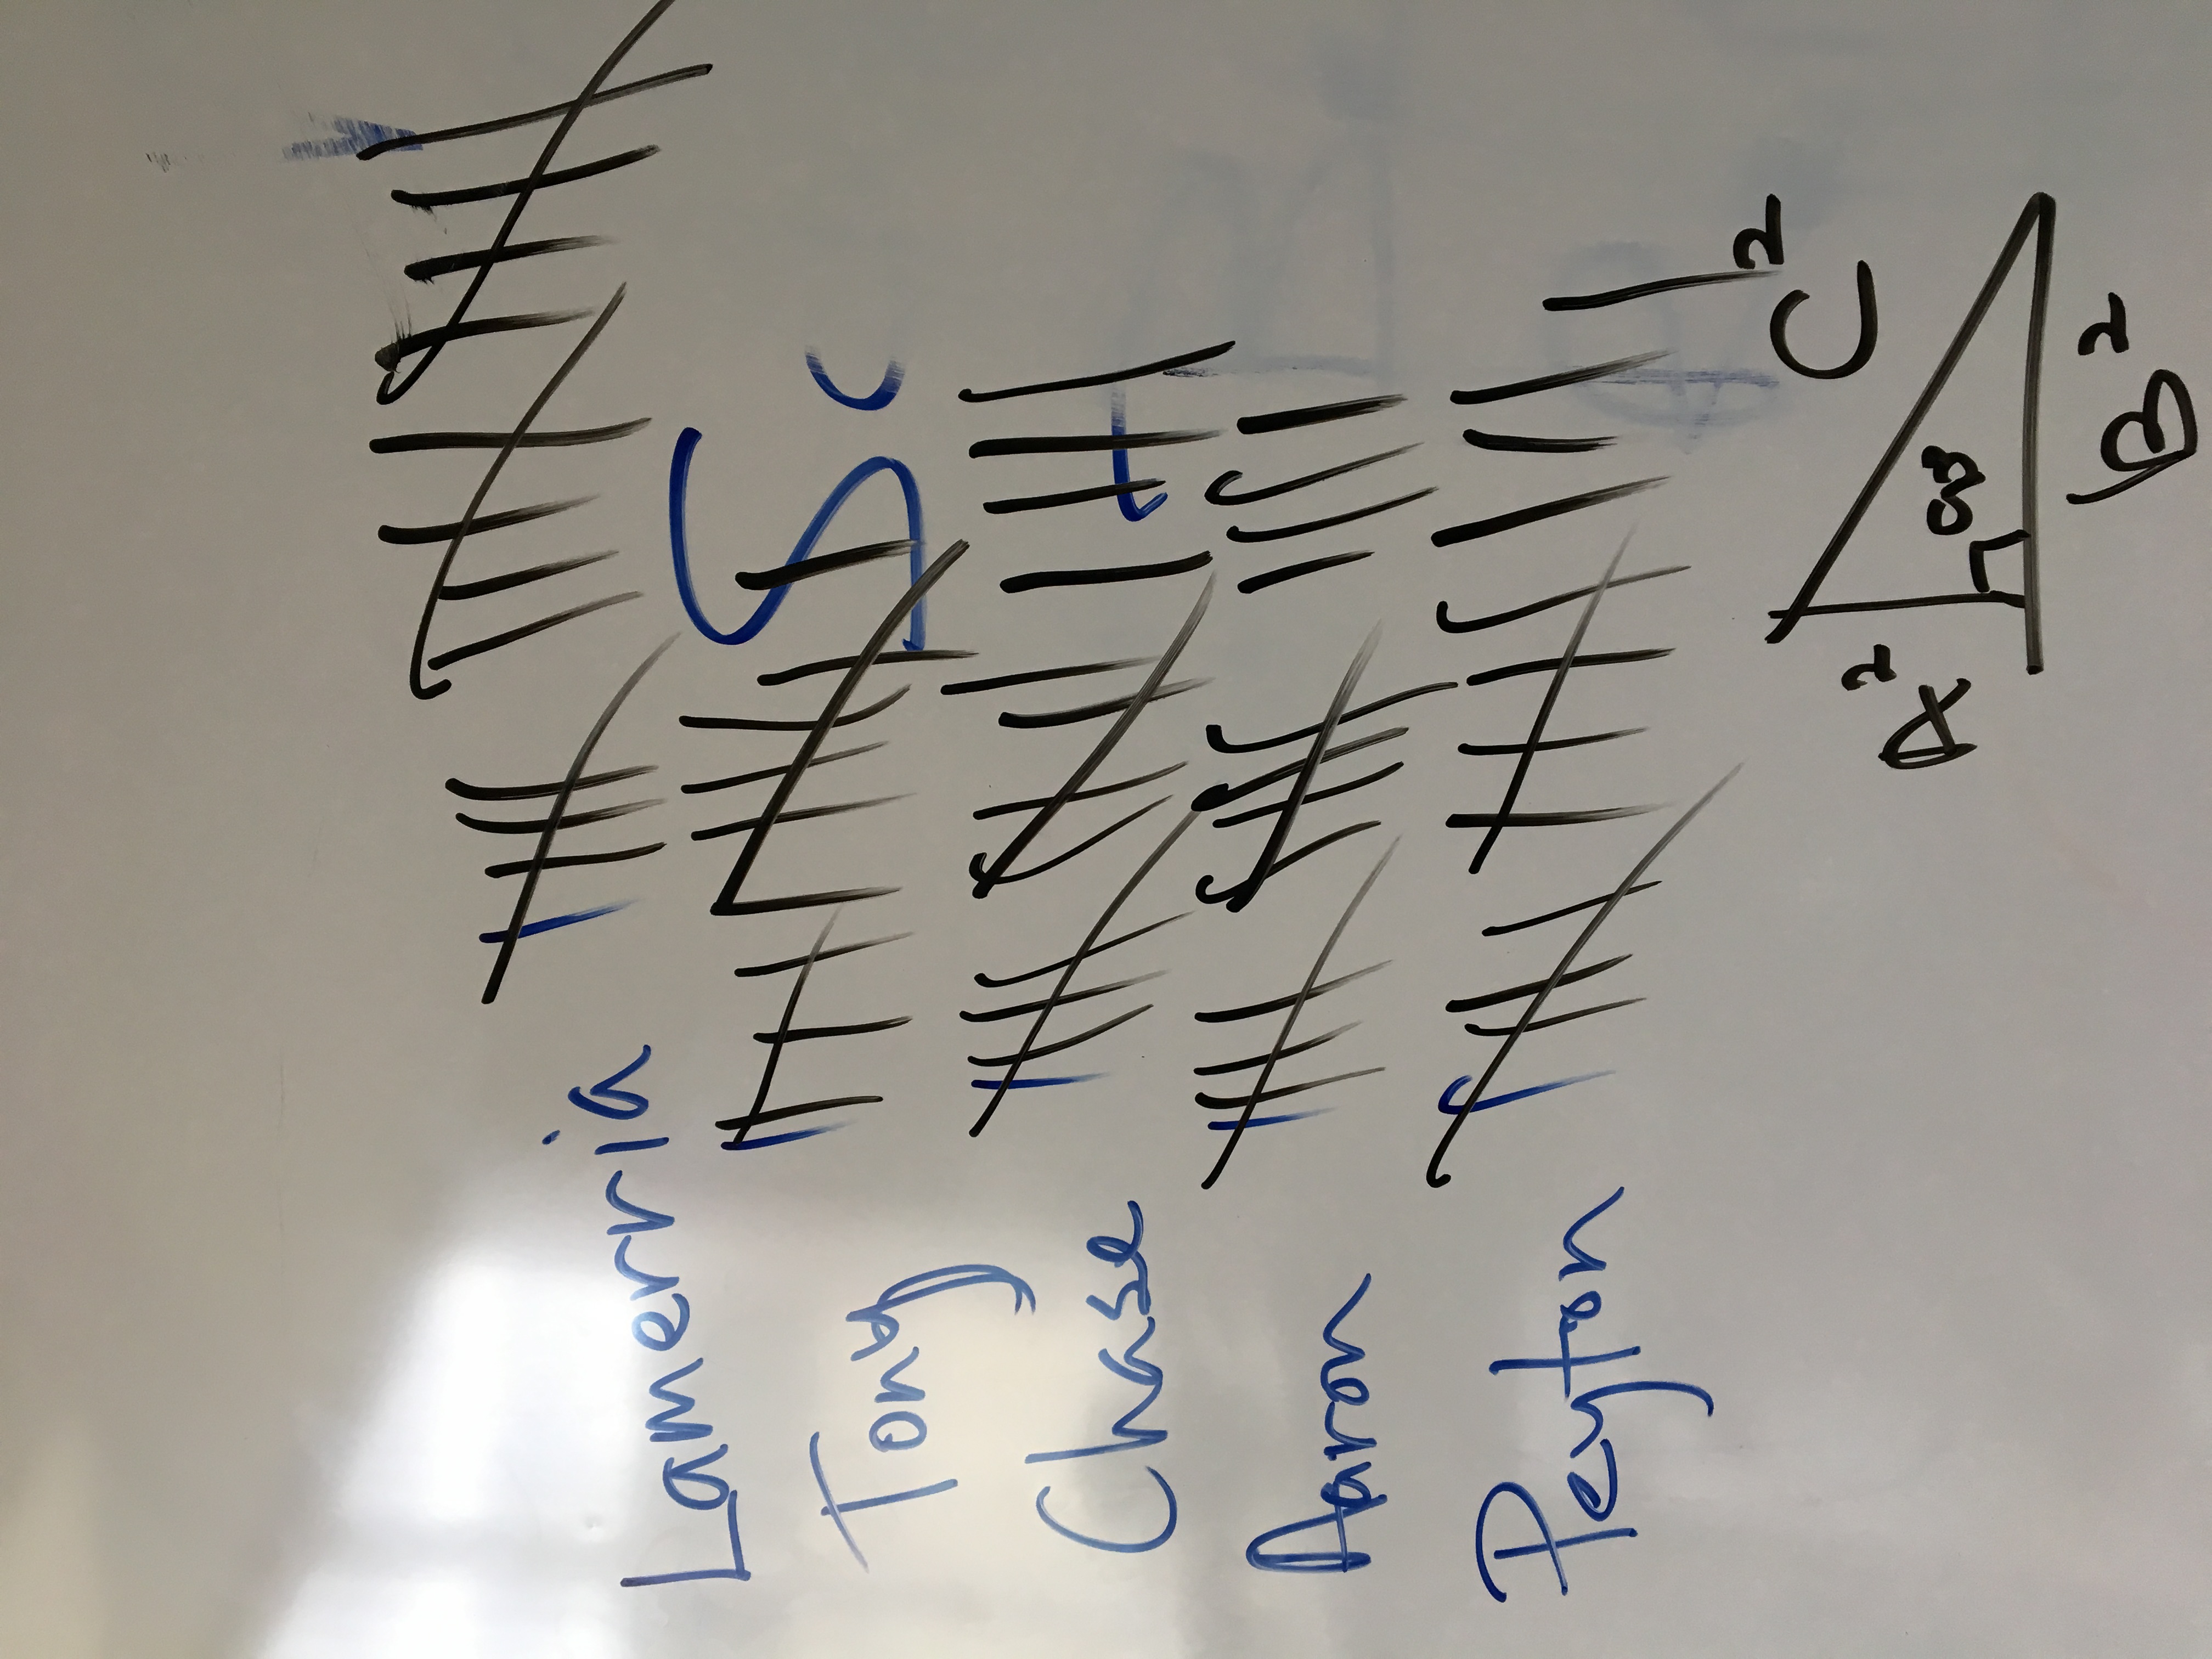 Lamerria
Tony
Chase
Aaren
Peyton
A²
B²
C²